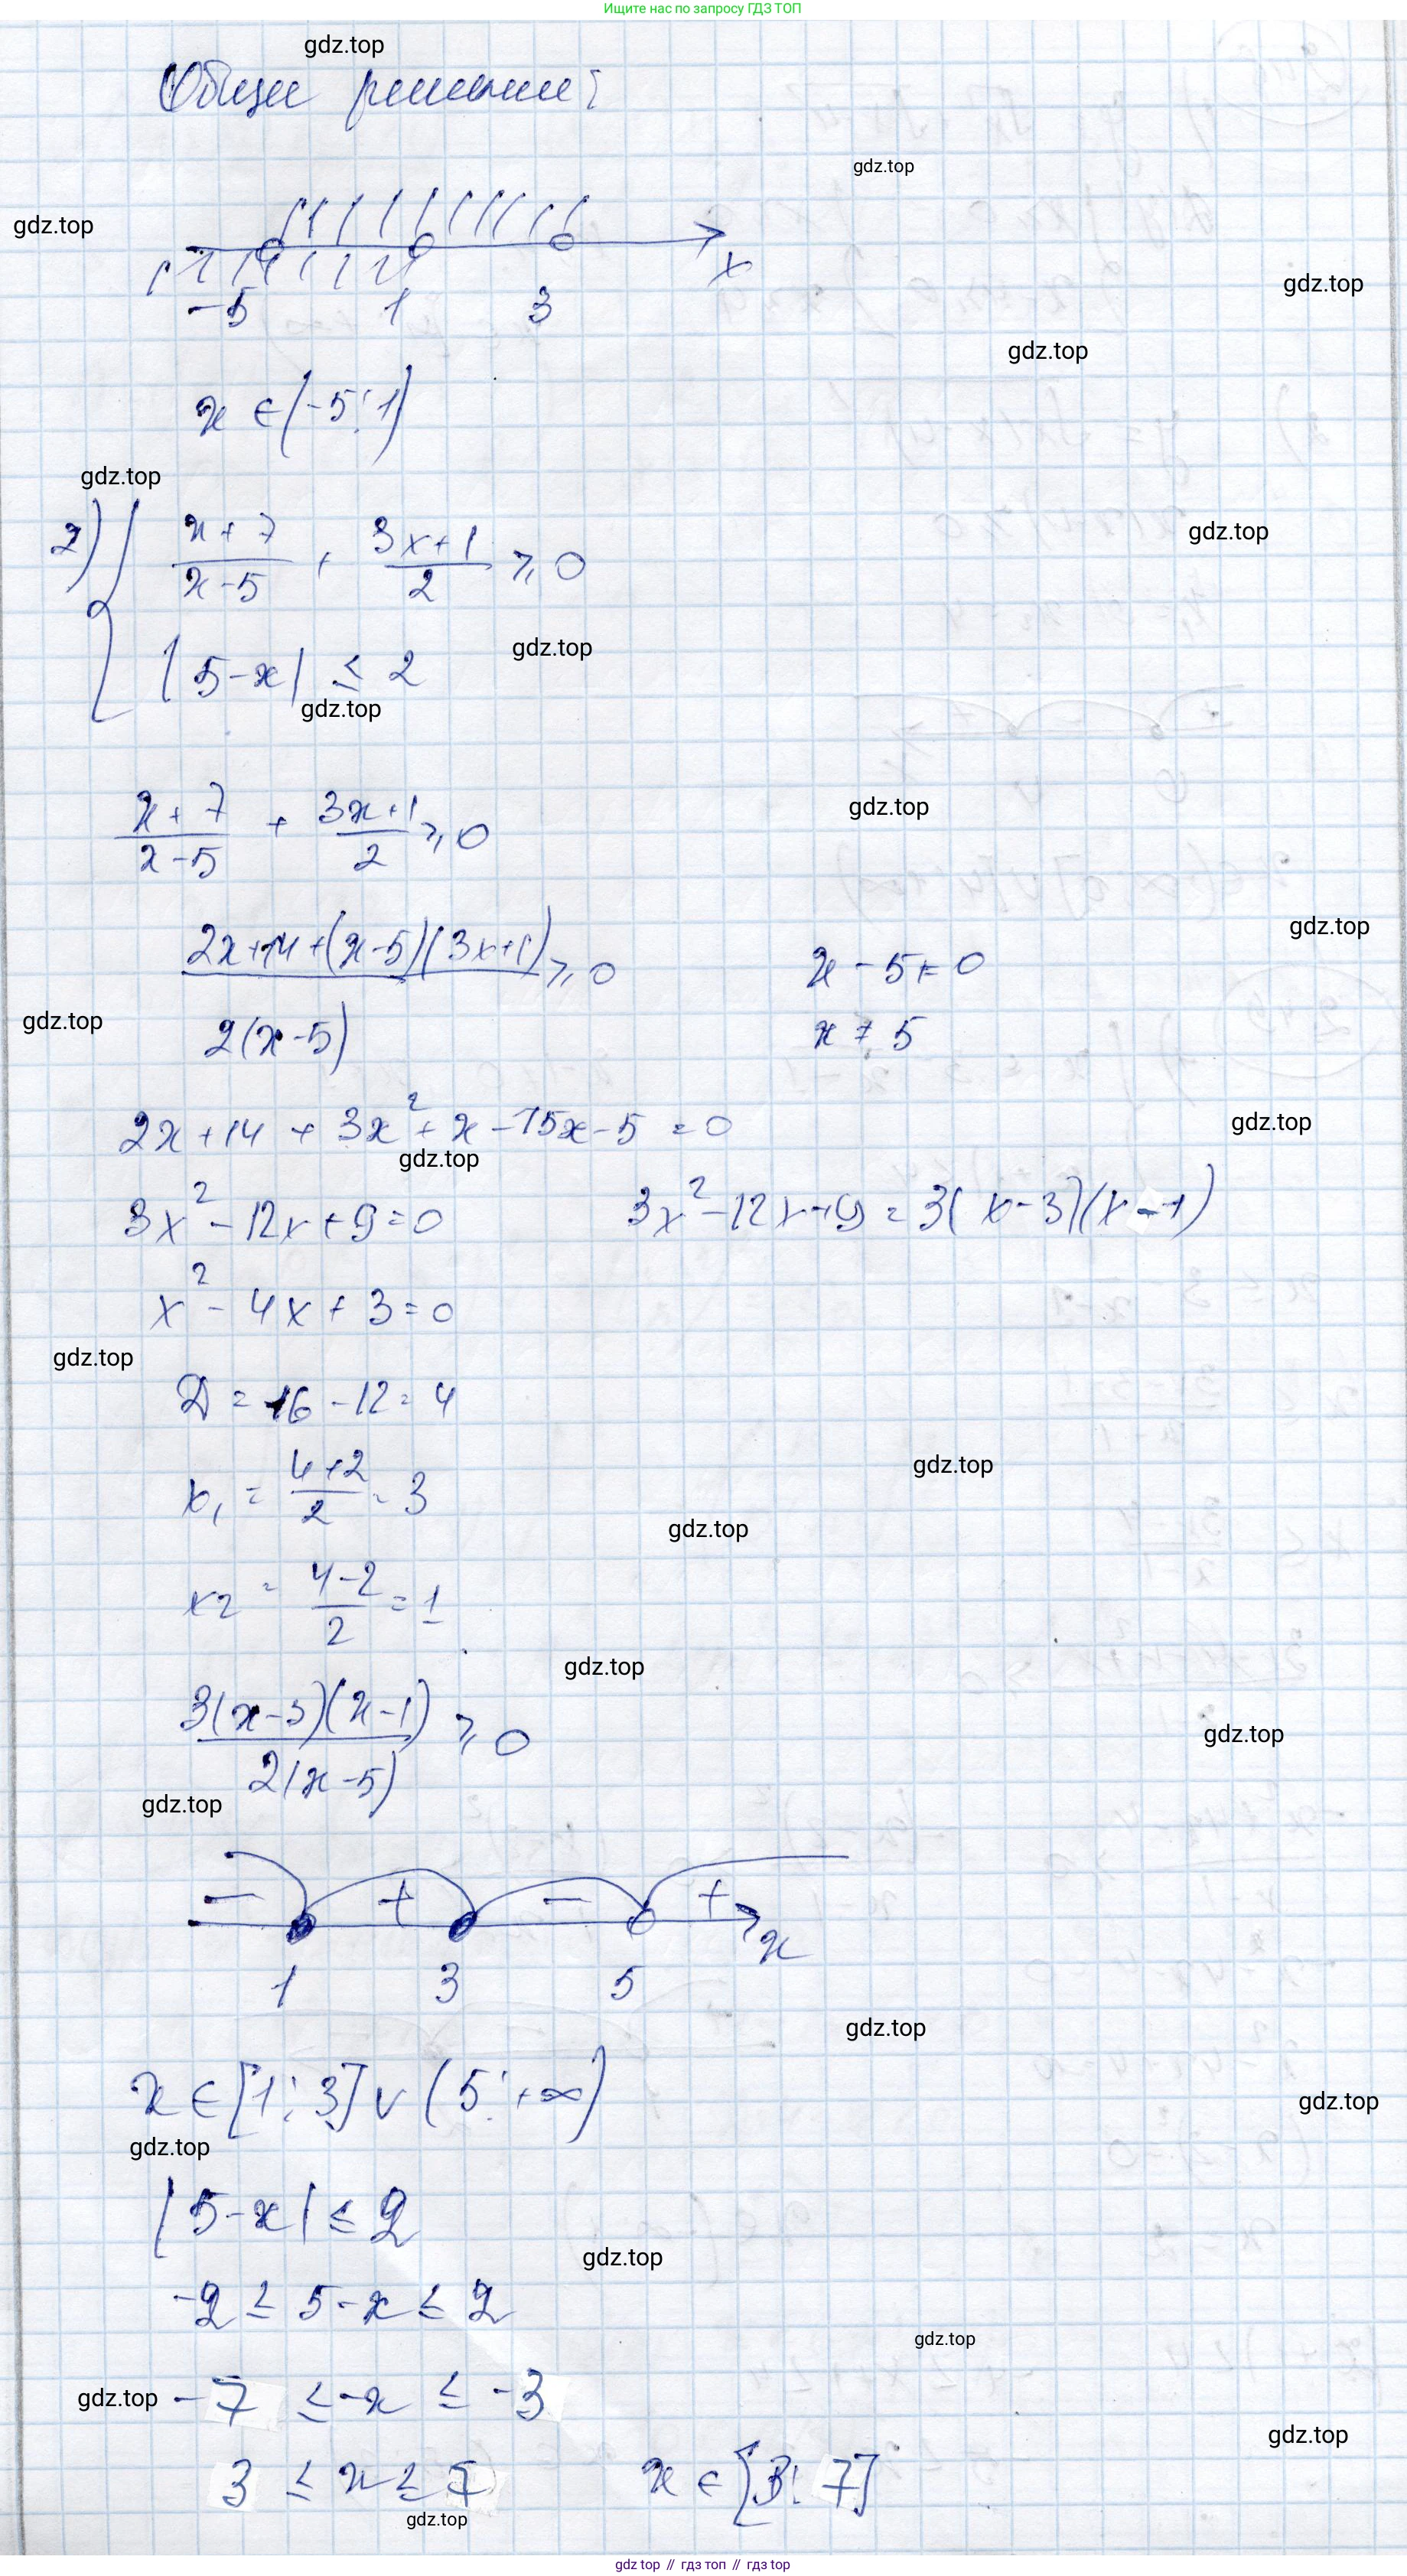 Ищите нас по запросу ГДЗ ТОП
gdz.top
Общее решение:
gdz.top
gdz.top
x
-5 1 3
gdz.top
gdz.top
x ∈ (-5; 1)
gdz.top
2) { (x+7)/(x-5) + (3x+1)/2 ⩾ 0
gdz.top
|5-x| ≤ 2
gdz.top
gdz.top
(x+7)/(x-5) + (3x+1)/2 ⩾ 0
gdz.top
gdz.top
(2x+14+(x-5)(3x+1))/(2(x-5)) ⩾ 0 x - 5 ≠ 0
gdz.top
x ≠ 5
2x+14 + 3x² + x - 15x - 5 = 0
gdz.top
gdz.top
3x² - 12x + 9 = 0 3x² - 12x + 9 = 3(x-3)(x-1)
x² - 4x + 3 = 0
gdz.top
D = 16 - 12 = 4
gdz.top
x₁ = (4+2)/2 = 3
gdz.top
x₂ = (4-2)/2 = 1
gdz.top
3(x-3)(x-1)/(2(x-5)) ⩾ 0
gdz.top
gdz.top
- + - +
x
1 3 5
gdz.top
x ∈ [1; 3] ∪ (5; +∞)
gdz.top
gdz.top
|5-x| ≤ 2
gdz.top
-2 ≤ 5-x ≤ 2
gdz.top
gdz.top
-7 ≤ -x ≤ -3
gdz.top
3 ≤ x ≤ 7 x ∈ [3; 7]
gdz.top
gdz top // гдз топ // gdz.top